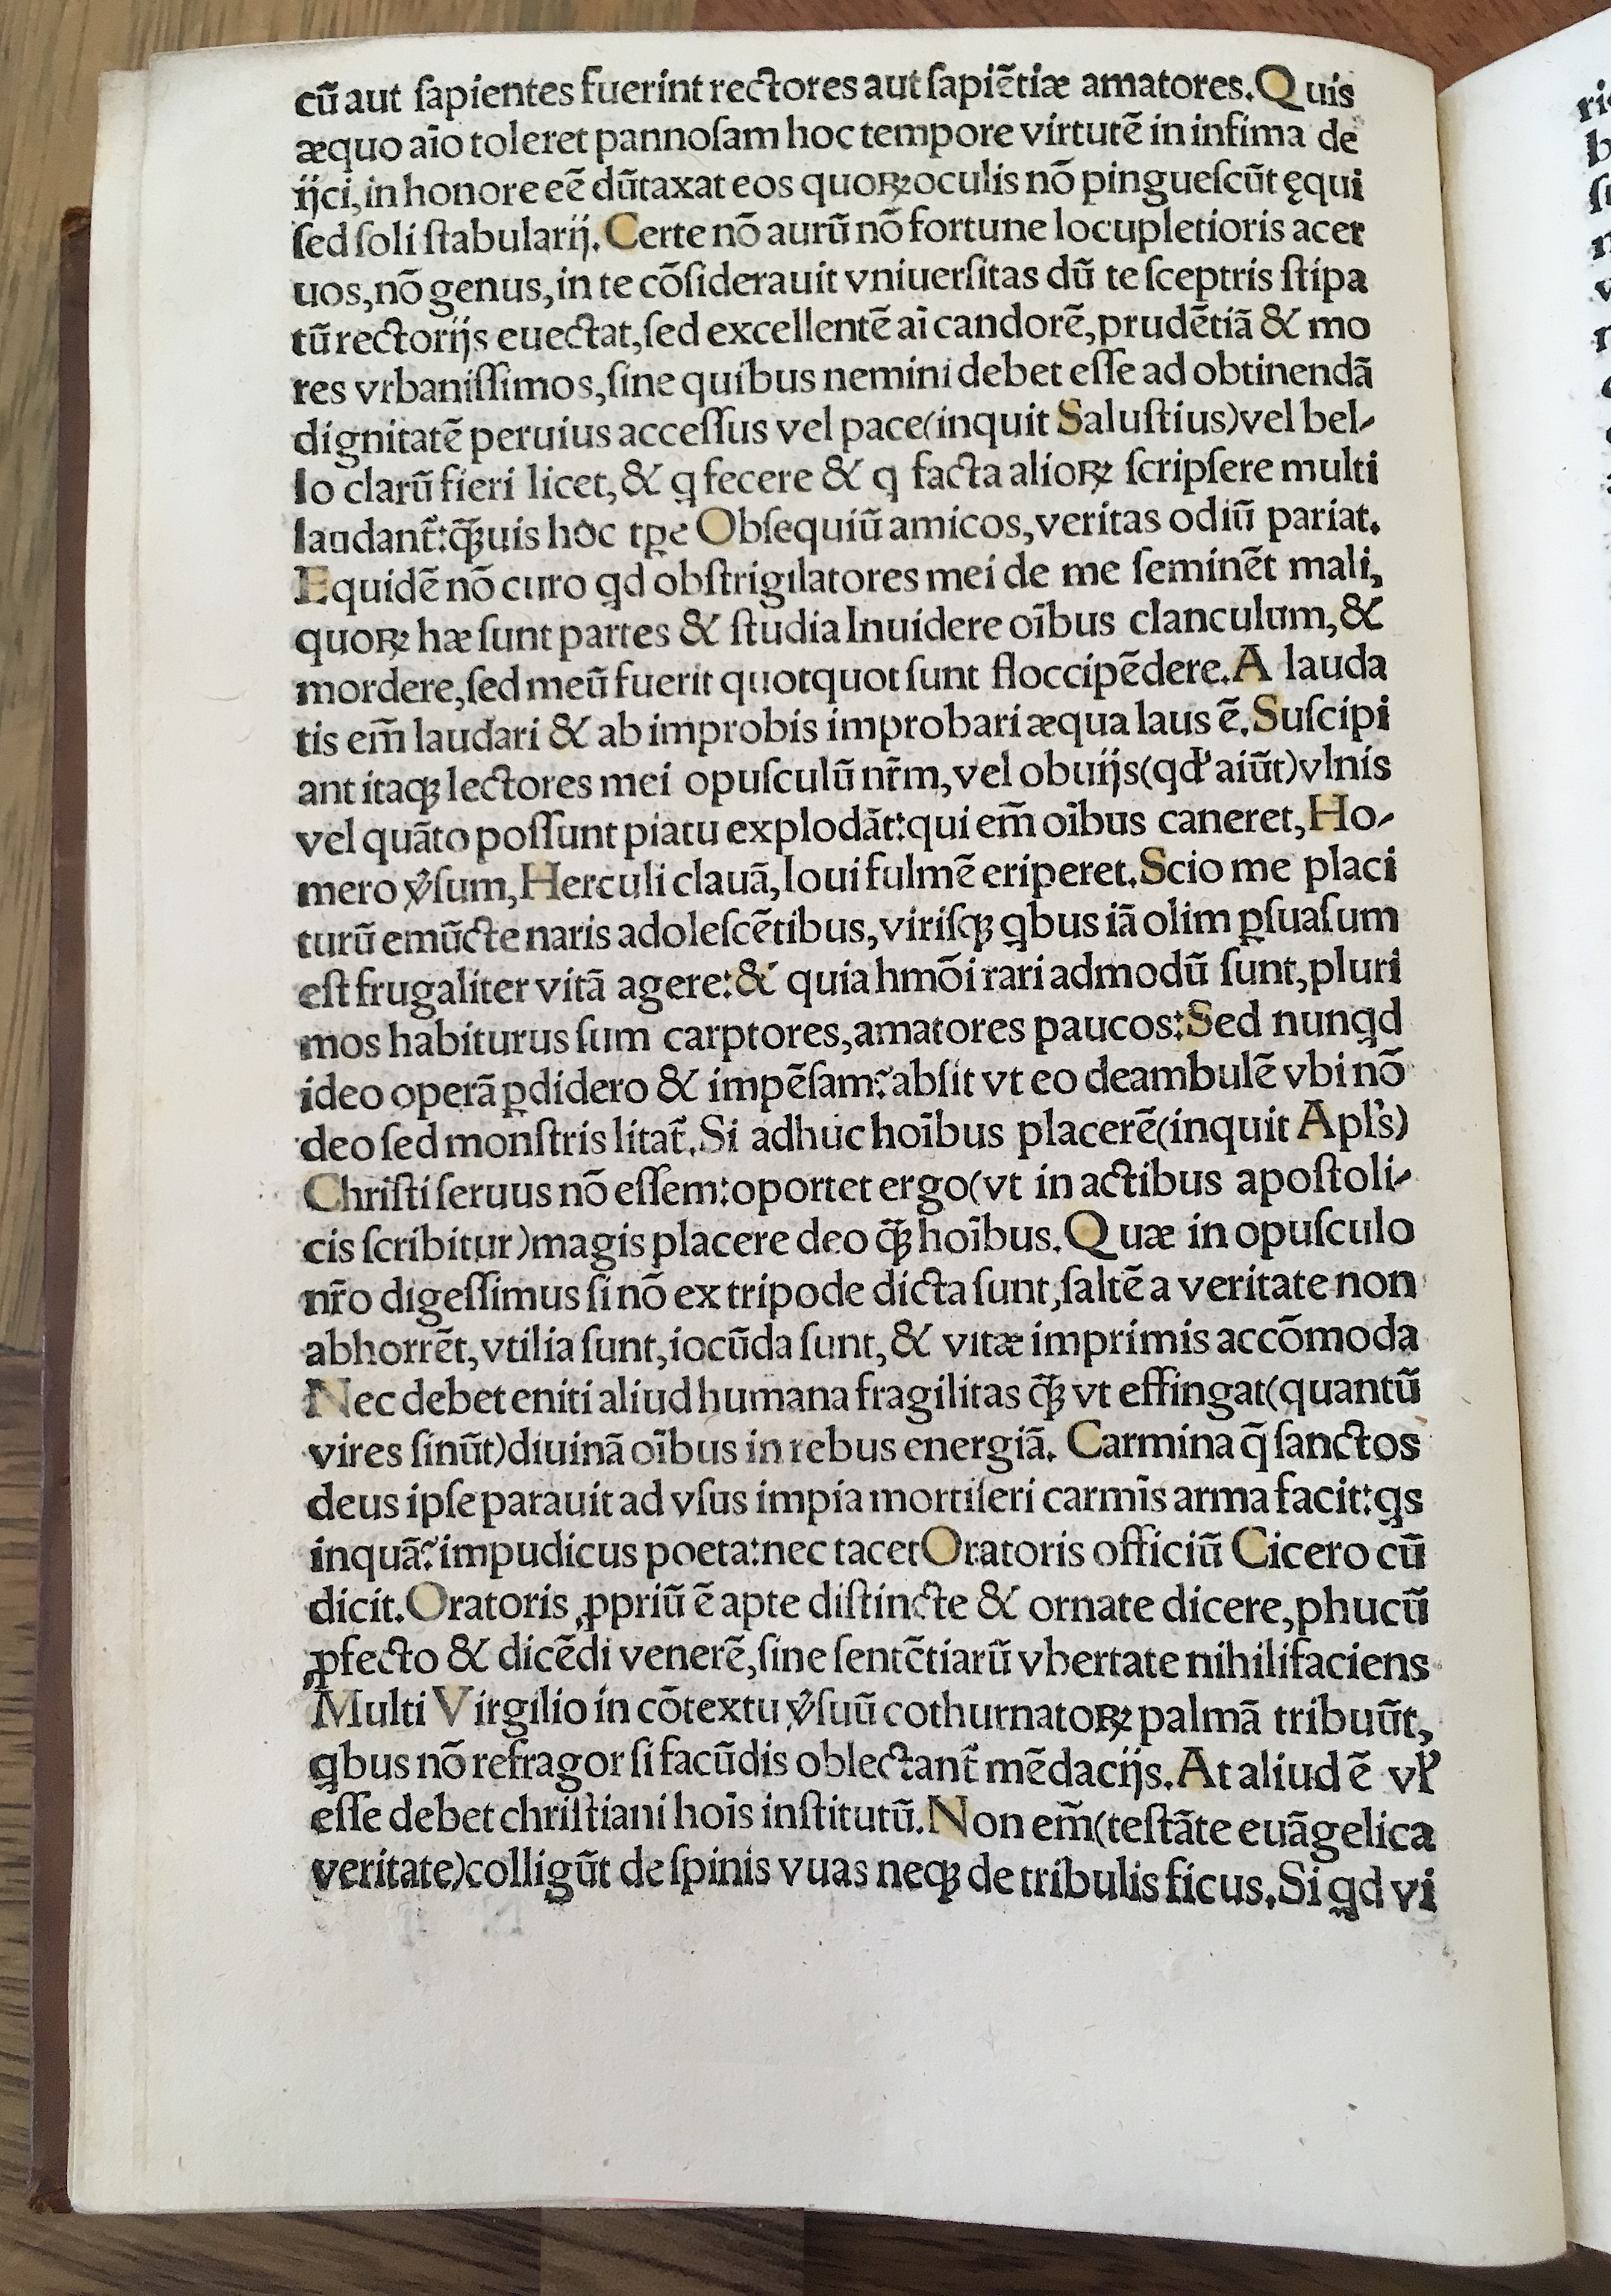 cū aut ſapientes fuerint rectores aut ſapiētiæ amatores. Quis
æquo aīo toleret pannoſam hoc tempore virtutē in infima de
ijci, in honore eē dūtaxat eos quoꝝ oculis nō pingueſcūt ęqui
ſed ſoli ſtabularij. Certe nō aurū nō fortune locupletioris acer
uos, nō genus, in te cōſiderauit vniuerſitas dū te ſceptris ſtipa
tū rectorijs euectat, ſed excellentē aī candorē, prudētiā & mo
res vrbaniſſimos, ſine quibus nemini debet eſſe ad obtinendā
dignitatē peruius acceſſus vel pace (inquit Saluſtius) vel bel-
lo clarū fieri licet, & ꝗ fecere & ꝗ facta alioꝝ ſcripſere multi
laudant̃: ꝗ̃uis hoc tꝑe Obſequiū amicos, veritas odiū pariat.
Equidē nō curo ꝗd obſtrigilatores mei de me ſeminēt mali,
quoꝝ hæ ſunt partes & ſtudia Inuidere oībus clanculum, &
mordere, ſed meū fuerit quotquot ſunt floccipēdere. A lauda
tis em̄ laudari & ab improbis improbari æqua laus ē. Suſcipi
ant itaqꝫ lectores mei opuſculū nr̄m, vel obuijs (qđ aiūt) vlnis
vel quāto poſſunt piatu explodāt: qui em̄ oībus caneret, Ho-
mero v̓ſum, Herculi clauā, Ioui fulmē eriperet. Scio me placi
turū emūcte naris adoleſcētibus, viriſqꝫ ꝗbus iā olim ꝑſuaſum
eſt frugaliter vitā agere: & quia hmōi rari admodū ſunt, pluri
mos habiturus ſum carptores, amatores paucos: Sed nunꝗd
ideo operā ꝑdidero & impēſam? abſit vt eo deambulē vbi nō
deo ſed monſtris litat̃. Si adhuc hoībus placerē (inquit Apl's)
Chriſti ſeruus nō eſſem: oportet ergo (vt in actibus apoſtoli-
cis ſcribitur) magis placere deo ꝗ̃ hoībus. Quæ in opuſculo
nr̄o digeſſimus ſi nō ex tripode dicta ſunt, ſaltē a veritate non
abhorrēt, vtilia ſunt, iocūda ſunt, & vitæ imprimis accōmoda
Nec debet eniti aliud humana fragilitas ꝗ̃ vt effingat (quantū
vires ſinūt) diuinā oībus in rebus energiā. Carmina q̄ ſanctos
deus ipſe parauit ad vſus impia mortiferi carmīs arma facit: ꝗs
inquā? impudicus poeta: nec tacet Oratoris officiū Cicero cū
dicit. Oratoris ꝓpriū ē apte diſtincte & ornate dicere, phucū
ꝓfecto & dicēdi venerē, ſine ſentētiarū vbertate nihilifaciens
Multi Virgilio in cōtextu v̓ſuū cothurnatoꝝ palmā tribuūt,
ꝗbus nō refragor ſi facūdis oblectant̃ mēdacijs. At aliud ē vł
eſſe debet chriſtiani hoīs inſtitutū. Non em̄ (teſtāte euāgelica
veritate) colligūt de ſpinis vuas neqꝫ de tribulis ficus. Si ꝗd vi